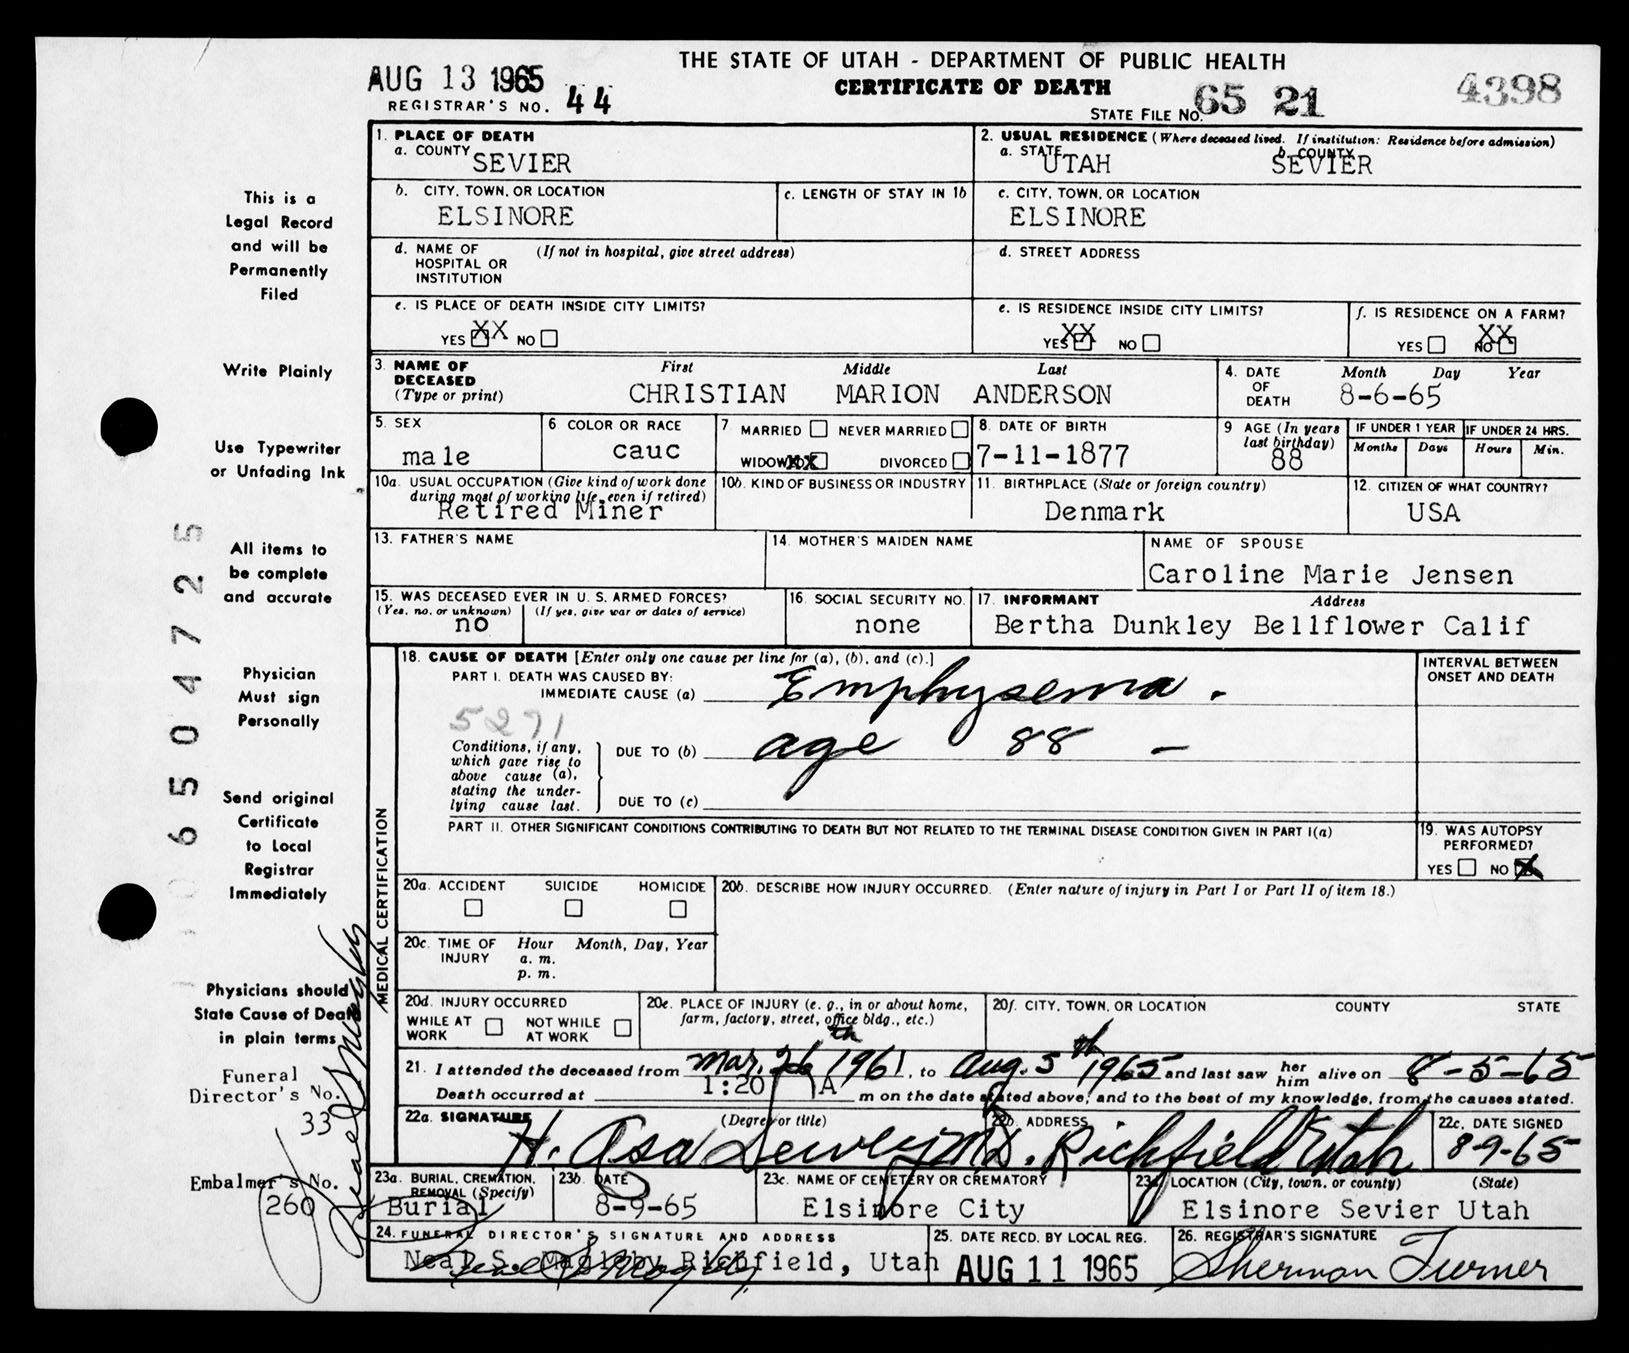 THE STATE OF UTAH - DEPARTMENT OF PUBLIC HEALTH
CERTIFICATE OF DEATH
AUG 13 1965
REGISTRAR'S NO. 44
STATE FILE NO. 65 21 4398
1. PLACE OF DEATH
a. COUNTY SEVIER
2. USUAL RESIDENCE (Where deceased lived. If institution: Residence before admission)
a. STATE UTAH b. COUNTY SEVIER
b. CITY, TOWN, OR LOCATION ELSINORE
c. LENGTH OF STAY IN 1b
c. CITY, TOWN, OR LOCATION ELSINORE
d. NAME OF HOSPITAL OR INSTITUTION (If not in hospital, give street address)
d. STREET ADDRESS
e. IS PLACE OF DEATH INSIDE CITY LIMITS?
YES XX NO
e. IS RESIDENCE INSIDE CITY LIMITS?
YES XX NO
f. IS RESIDENCE ON A FARM?
YES NO XX
3. NAME OF DECEASED (Type or print)
First Middle Last
CHRISTIAN MARION ANDERSON
4. DATE OF DEATH Month Day Year
8-6-65
5. SEX male
6 COLOR OR RACE cauc
7 MARRIED NEVER MARRIED
WIDOWED XX DIVORCED
8. DATE OF BIRTH 7-11-1877
9 AGE (In years last birthday) 88
IF UNDER 1 YEAR Months Days
IF UNDER 24 HRS. Hours Min.
10a. USUAL OCCUPATION (Give kind of work done during most of working life, even if retired)
Retired Miner
10b. KIND OF BUSINESS OR INDUSTRY
11. BIRTHPLACE (State or foreign country)
Denmark
12. CITIZEN OF WHAT COUNTRY?
USA
13. FATHER'S NAME
14. MOTHER'S MAIDEN NAME
NAME OF SPOUSE
Caroline Marie Jensen
15. WAS DECEASED EVER IN U. S. ARMED FORCES?
(Yes, no, or unknown) (If yes, give war or dates of service)
no
16. SOCIAL SECURITY NO.
none
17. INFORMANT Address
Bertha Dunkley Bellflower Calif
MEDICAL CERTIFICATION
18. CAUSE OF DEATH [Enter only one cause per line for (a), (b), and (c).]
PART I. DEATH WAS CAUSED BY:
IMMEDIATE CAUSE (a) Emphysema.
5271
Conditions, if any, which gave rise to above cause (a), stating the underlying cause last.
DUE TO (b) age 88 -
DUE TO (c)
INTERVAL BETWEEN ONSET AND DEATH
PART II. OTHER SIGNIFICANT CONDITIONS CONTRIBUTING TO DEATH BUT NOT RELATED TO THE TERMINAL DISEASE CONDITION GIVEN IN PART I(a)
19. WAS AUTOPSY PERFORMED?
YES NO X
20a. ACCIDENT SUICIDE HOMICIDE
20b. DESCRIBE HOW INJURY OCCURRED. (Enter nature of injury in Part I or Part II of item 18.)
20c. TIME OF INJURY Hour Month, Day, Year
a. m.
p. m.
20d. INJURY OCCURRED
WHILE AT WORK NOT WHILE AT WORK
20e. PLACE OF INJURY (e. g., in or about home, farm, factory, street, office bldg., etc.)
20f. CITY, TOWN, OR LOCATION COUNTY STATE
21. I attended the deceased from Mar. 26th 1961, to Aug. 5th 1965 and last saw her him alive on 8-5-65
Death occurred at 1:20 A m on the date stated above, and to the best of my knowledge, from the causes stated.
22a. SIGNATURE (Degree or title) H. Asa Dewey MD.
22b. ADDRESS Richfield Utah
22c. DATE SIGNED 8-9-65
23a. BURIAL, CREMATION, REMOVAL (Specify)
Burial
23b. DATE
8-9-65
23c. NAME OF CEMETERY OR CREMATORY
Elsinore City
23d. LOCATION (City, town, or county) (State)
Elsinore Sevier Utah
24. FUNERAL DIRECTOR'S SIGNATURE AND ADDRESS
Neal S. Magleby Richfield, Utah
Neal S Magleby
25. DATE RECD. BY LOCAL REG.
AUG 11 1965
26. REGISTRAR'S SIGNATURE
Sherman Turner
This is a
Legal Record
and will be
Permanently
Filed
Write Plainly
Use Typewriter
or Unfading Ink
All items to
be complete
and accurate
Physician
Must sign
Personally
Send original
Certificate
to Local
Registrar
Immediately
Physicians should
State Cause of Death
in plain terms
Funeral
Director's No.
33
Embalmer's No.
260
Neal S Magleby
0 6 5 0 4 7 2 5